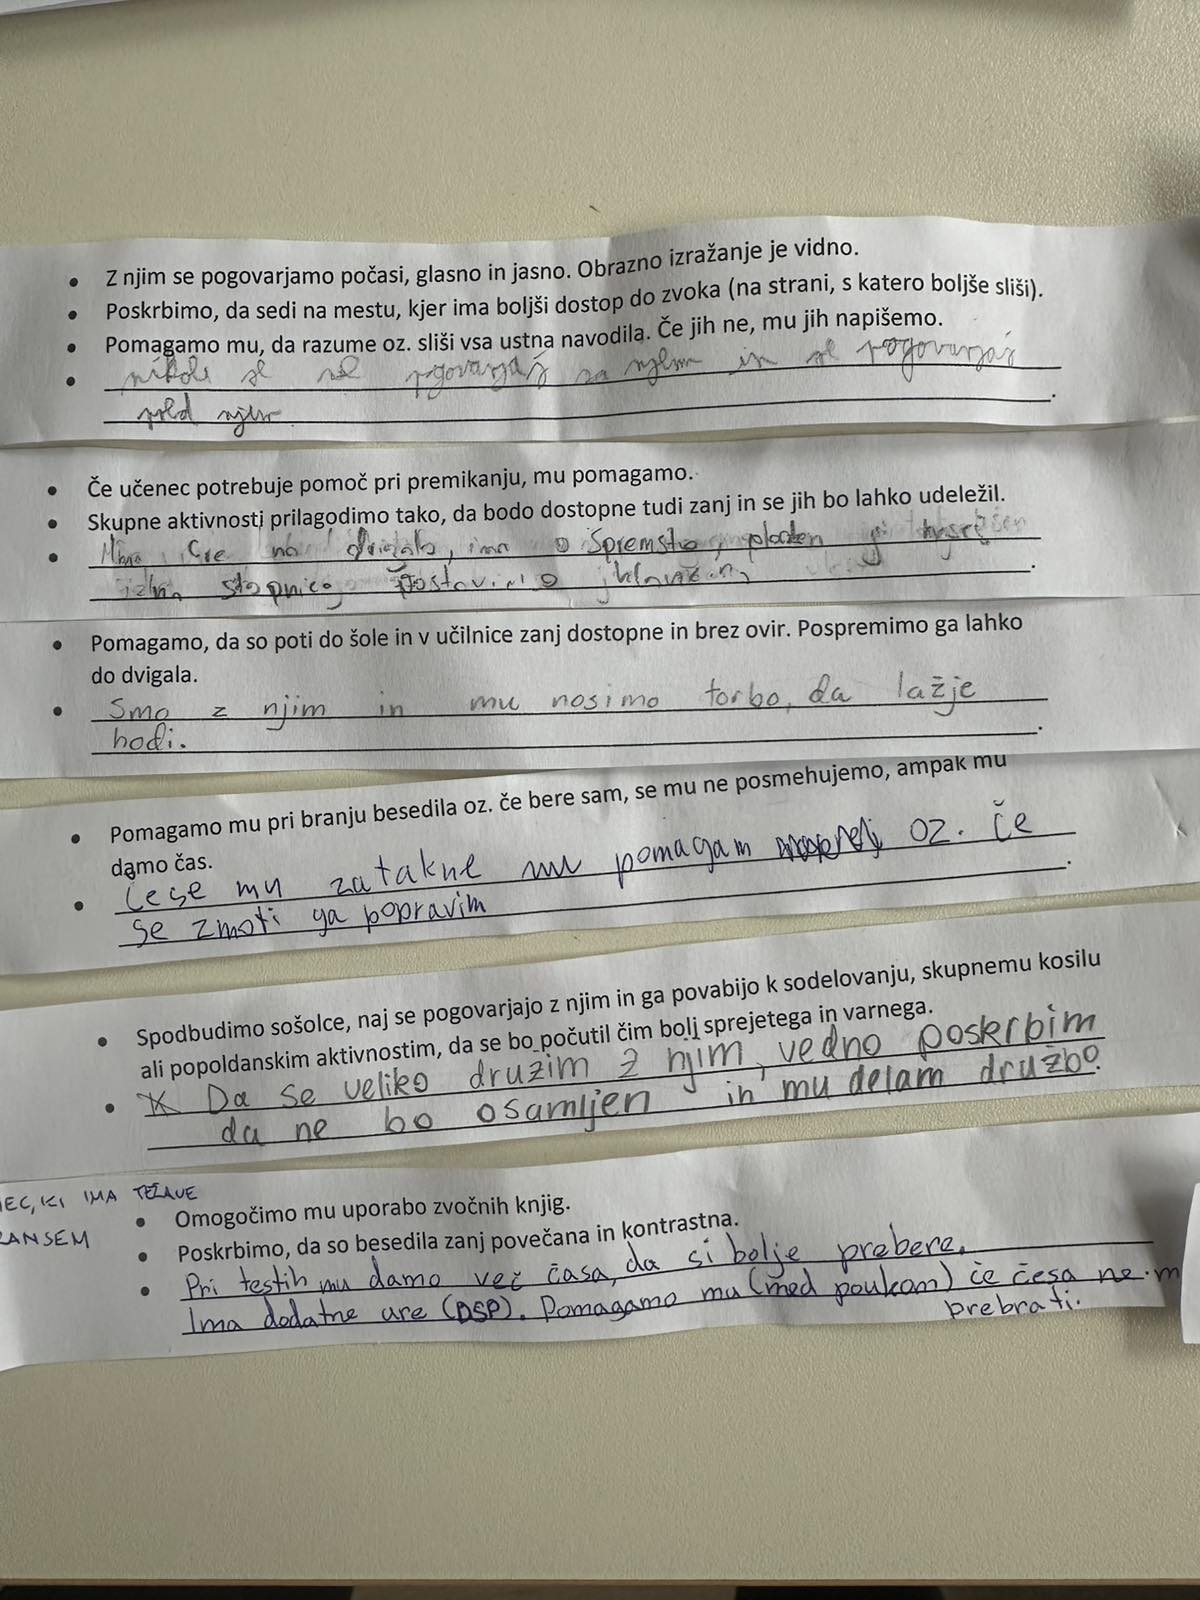 • Z njim se pogovarjamo počasi, glasno in jasno. Obrazno izražanje je vidno.
• Poskrbimo, da sedi na mestu, kjer ima boljši dostop do zvoka (na strani, s katero boljše sliši).
• Pomagamo mu, da razume oz. sliši vsa ustna navodila. Če jih ne, mu jih napišemo.
• nikoli se ne pogovarjaš za njem in se pogovarjaš
pred njem.
• Če učenec potrebuje pomoč pri premikanju, mu pomagamo.
• Skupne aktivnosti prilagodimo tako, da bodo dostopne tudi zanj in se jih bo lahko udeležil.
• Gre na dvigalo, ima Spremstvo,
stopnice Postavimo
• Pomagamo, da so poti do šole in v učilnice zanj dostopne in brez ovir. Pospremimo ga lahko
do dvigala.
• Smo z njim in mu nosimo torbo, da lažje
hodi.
• Pomagamo mu pri branju besedila oz. če bere sam, se mu ne posmehujemo, ampak mu
damo čas.
• Če se mu zatakne mu pomagam naprej oz. če
se zmoti ga popravim
• Spodbudimo sošolce, naj se pogovarjajo z njim in ga povabijo k sodelovanju, skupnemu kosilu
ali popoldanskim aktivnostim, da se bo počutil čim bolj sprejetega in varnega.
• Da se veliko družim z njim, vedno poskrbim
da ne bo osamljen in mu delam družbo.
EC, KI IMA TEŽAVE
RANJEM
• Omogočimo mu uporabo zvočnih knjig.
• Poskrbimo, da so besedila zanj povečana in kontrastna.
• Pri testih mu damo več časa, da si bolje prebere.
Ima dodatne ure (DSP). Pomagamo mu (med poukom) če česa ne m
prebrati.